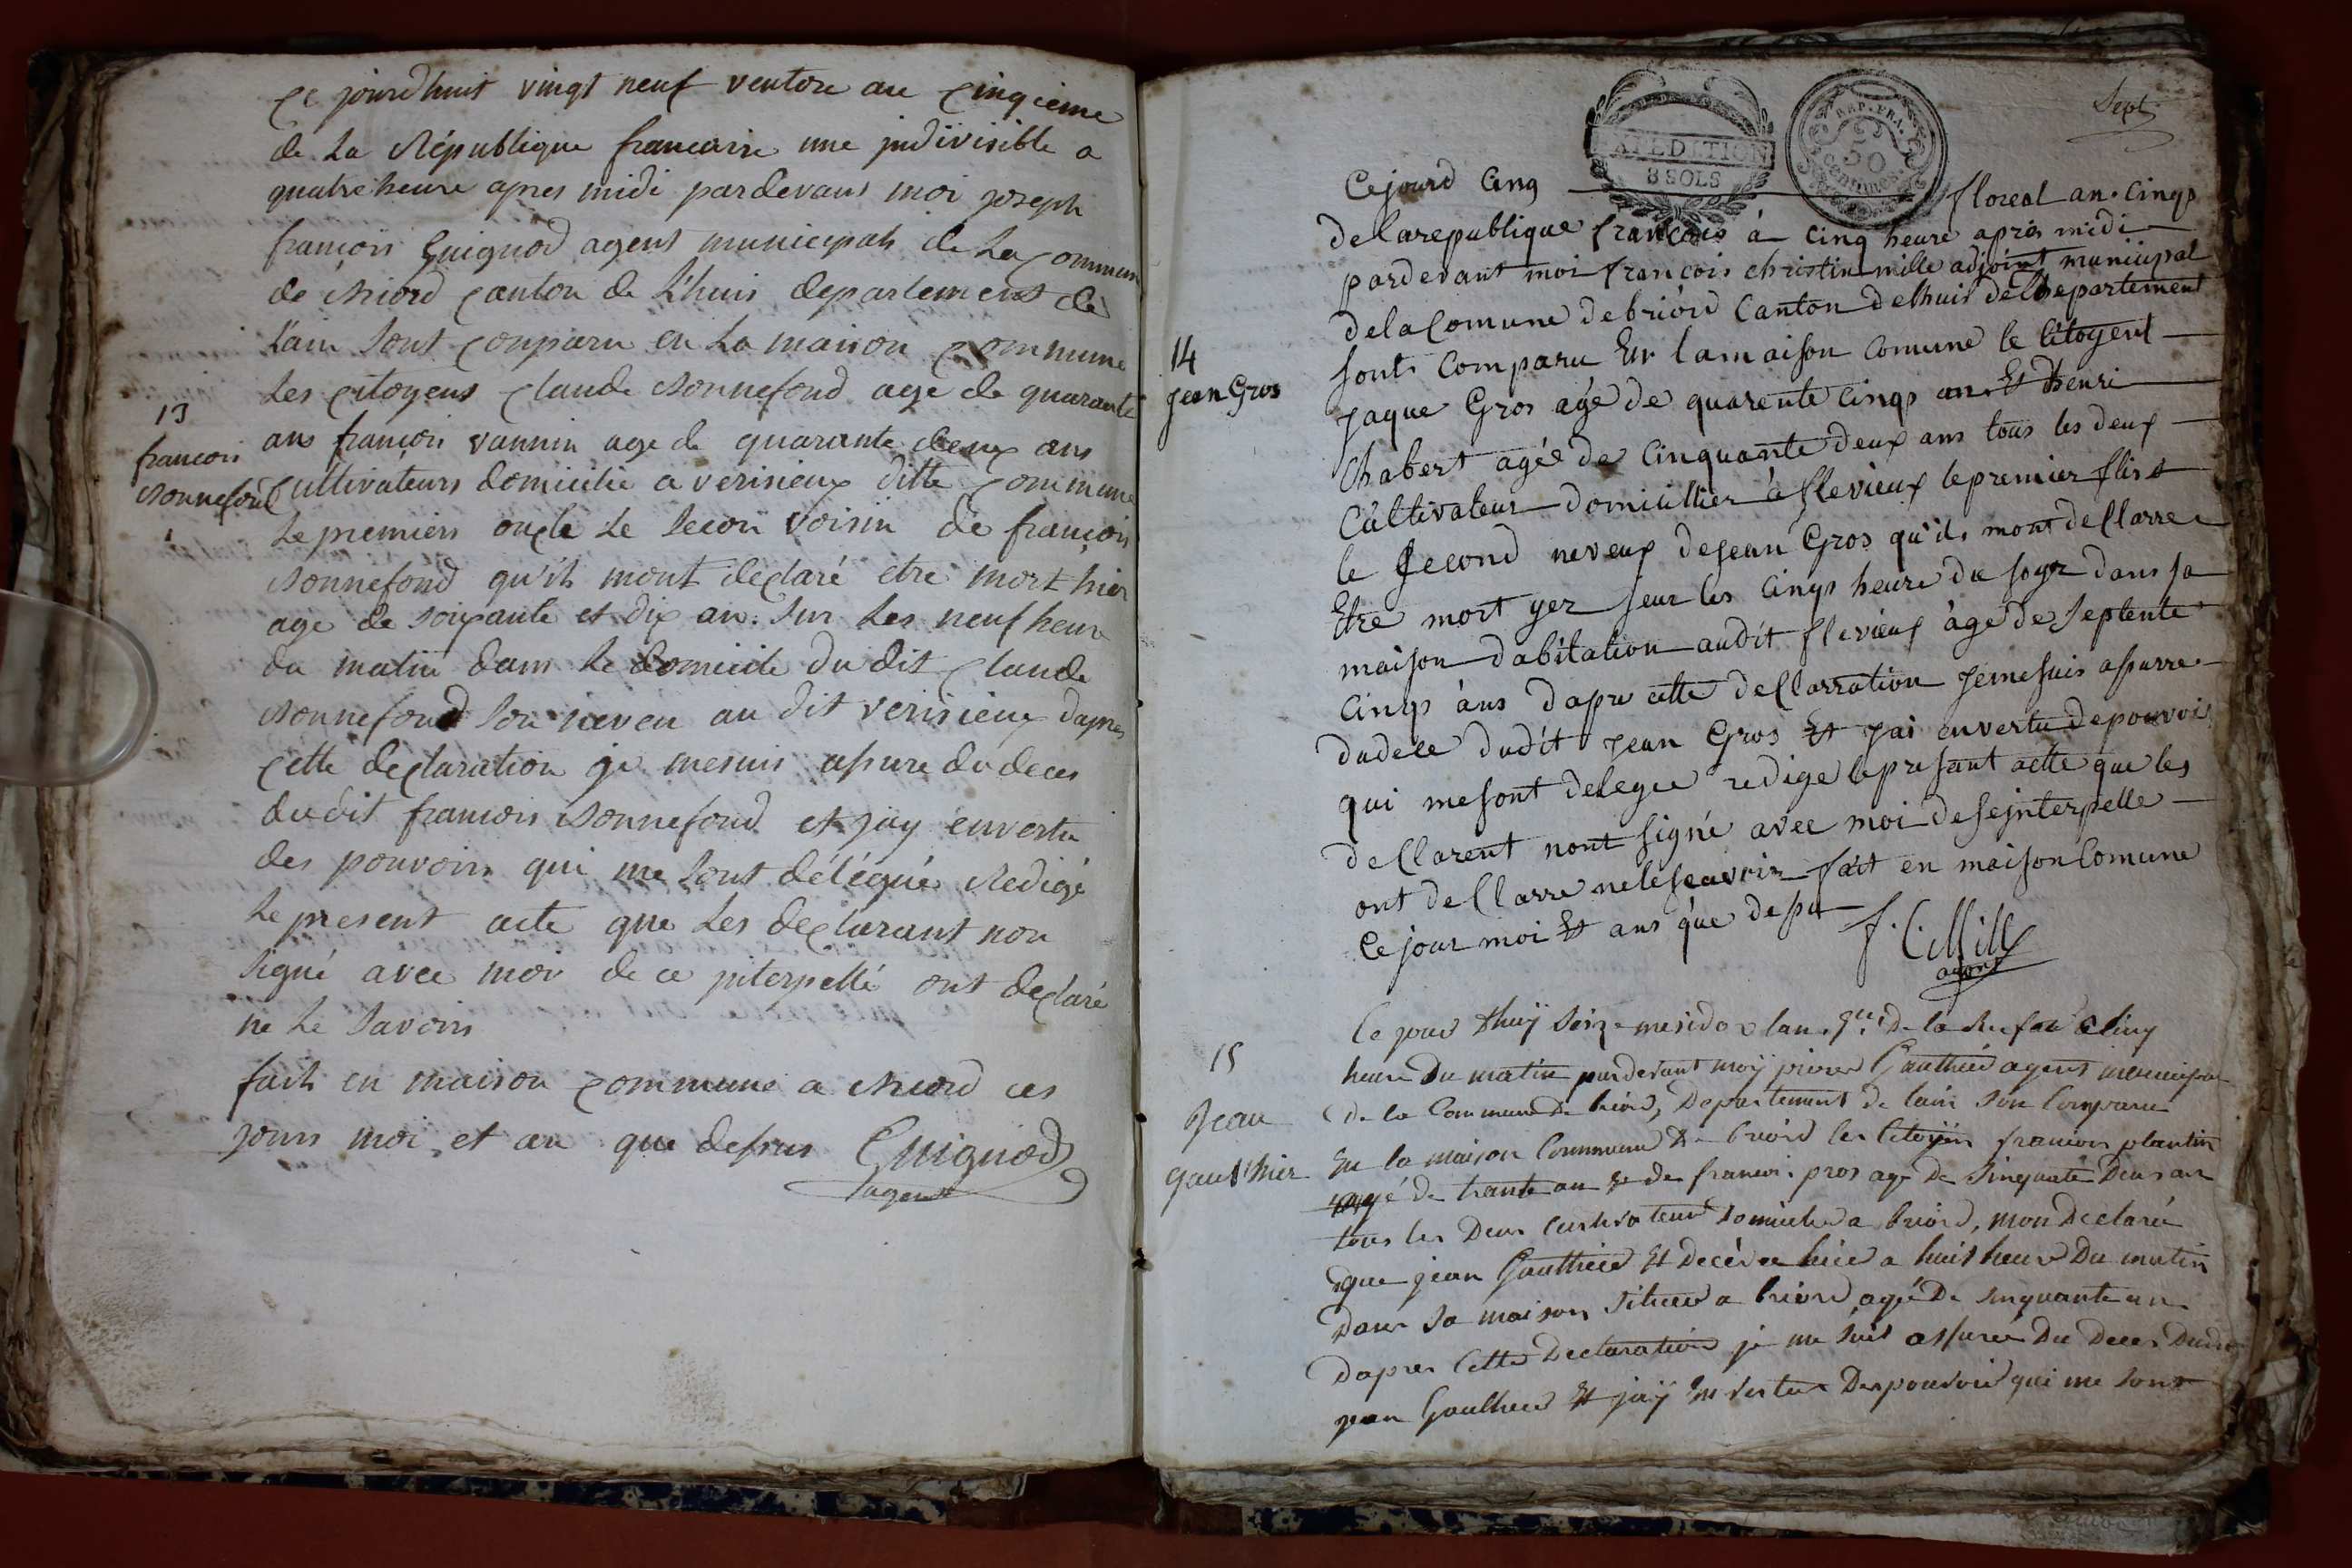 Ce jourdhuit vingt neuf ventose an cinqieme
de La République francaisse une indivisible a
quatre heure apres midi pardevant moi joseph
francois Guignod agent municipals de La Commune
de Briord Canton de L'huis departement de
L'ain sont Conparu en La maison Commune
Les Citoyens Claude Bonnefond age de quarante
ans francois vannin age de quarante deux ans
13
francois
Bonnefond
Cultivateurs domicilié a verisieux ditte Commune
Le premiers oncle Le secon voisin de francois
Bonnefond qu'ils mont declaré etre mort hier
age de soixante et dix an. sur Les neuf heure
du matin dans Le domicile du dit Claude
Bonnefond son neveu au dit verisieux dapres
Cette declaration je mesuis assure du deces
dudit francois Bonnefond et jay envertu
des pouvoirs qui me sont délégués Redigé
Le present acte que Les declarant non
signé avec moi de ce interpellé ont declaré
ne Le savoirs
fait en maison Commune a Briord ces
jours moi et an que dessus Guignod
agent
Sept
EXPEDITION
8 SOLS
REP. FRA.
50
centimes
Cejourd Cinq floreal an. Cinqs
delarepublique francois à cinq heure après midi
pardevant moi francois christin mille adjoint municipal
delacomune debriord Canton delhuis deldepartement
sont Comparu En lamaison Comune le Citogent
14
jean Gros
jaque Gros agé de quarente Cinqs ans Et henri
Chabert agéé de Cinquante deux ans tous les deux
Cultivateur domicillier à flevieux lepremier flis et
le second neveux dejean Gros qu'ils mont declarre
Etre mort yer seur les Cinqs heure du soyr dans sa
maison dabitation audit flevieux àgé de septente
Cinqs àns dapre cette declarration jemesuis assurre
dudece dudit jean Gros Et jai envertu depouvois
qui mesont delegue redige lepresant actte que les
declarent nont signé avec moi desejnterpelle
ont declarre neleseavoir fait en maison Comune
Ce jour moi Et ans que desu
f. C. Mill
agent
Ce jour dhuÿ seize mesidor lan 5.e De la Re fran a cinq
heure Du matin pardevant moÿ pierre Gauthier agent municipal
15
Jean
gauthier
De la Commune De briord, Departement de lain son Comparu
En la maison Commune De briord les Citoÿin francois plantin
agé de trante an & de francoi. pros age De sinquante Deus an
tous les Deus Cultivateur Domicilié a briord, mon Declaré
que jean Gauthier Et Decéder hier a huit heure Du matin
Dans sa maison situee a briord agé De sinquante an
Dapres Cette Declaration je me suis assuré Du Deces Dudit
jean Gauthier Et jaÿ En vertu Des pouvoir qui me sont